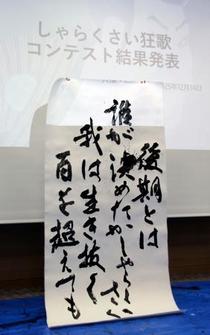 しゃらくさい狂歌
コンテスト結果発表
25年12月14日
後期とは
誰が決めたかしゃらくさく
我は生き抜く
百を超えても